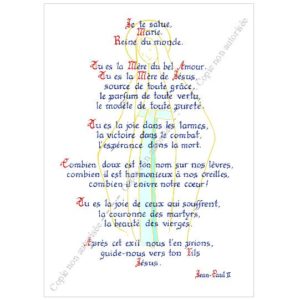 Je te salue,
Marie,
Reine du monde.
Tu es la Mère du bel Amour.
Tu es la Mère de Jésus,
source de toute grâce,
le parfum de toute vertu,
le modèle de toute pureté.
Tu es la joie dans les larmes,
la victoire dans le combat,
l'espérance dans la mort.
Combien doux est ton nom sur nos lèvres,
combien il est harmonieux à nos oreilles,
combien il enivre notre coeur!
Tu es la joie de ceux qui souffrent,
la couronne des martyrs,
la beauté des vierges.
Après cet exil nous t'en prions,
guide-nous vers ton Fils
Jésus.
Jean-Paul II
Copie non autorisée
Copie non autorisée
Copie non autorisée